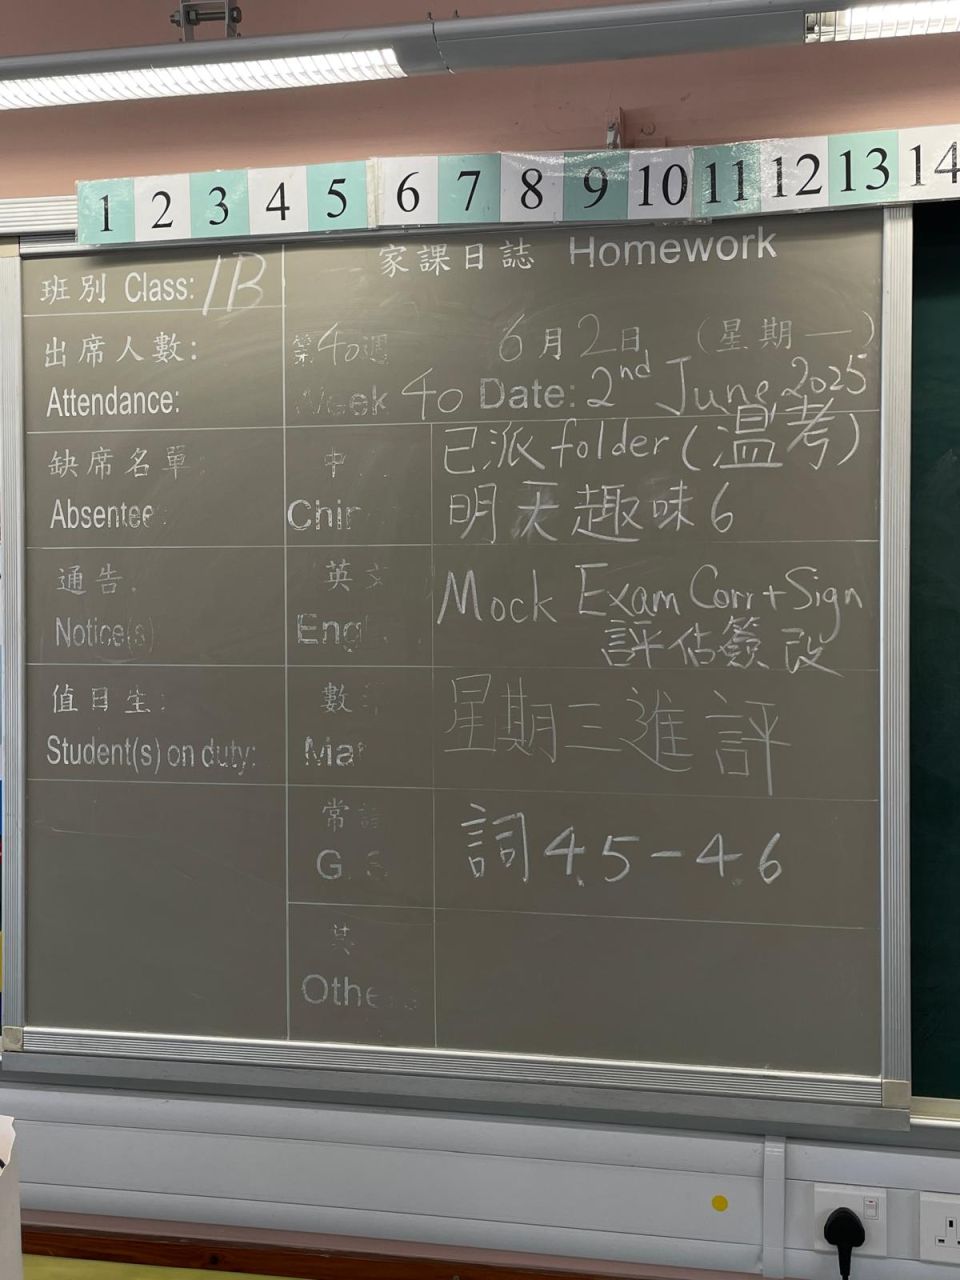 1 2 3 4 5 6 7 8 9 10 11 12 13 14
家課日誌 Homework
班別 Class: 1B
出席人數:
Attendance:
第40週 6月2日 (星期一)
Week 40 Date: 2nd June, 2025
缺席名單:
Absentee
中
Chin
已派folder(溫考)
明天趣味6
通告:
Notice(s)
英文
Eng
Mock Exam Corr+Sign
評估簽改
值日生:
Student(s) on duty:
數
Mat
星期三進評
常
G. S
詞4.5-4.6
其
Othe